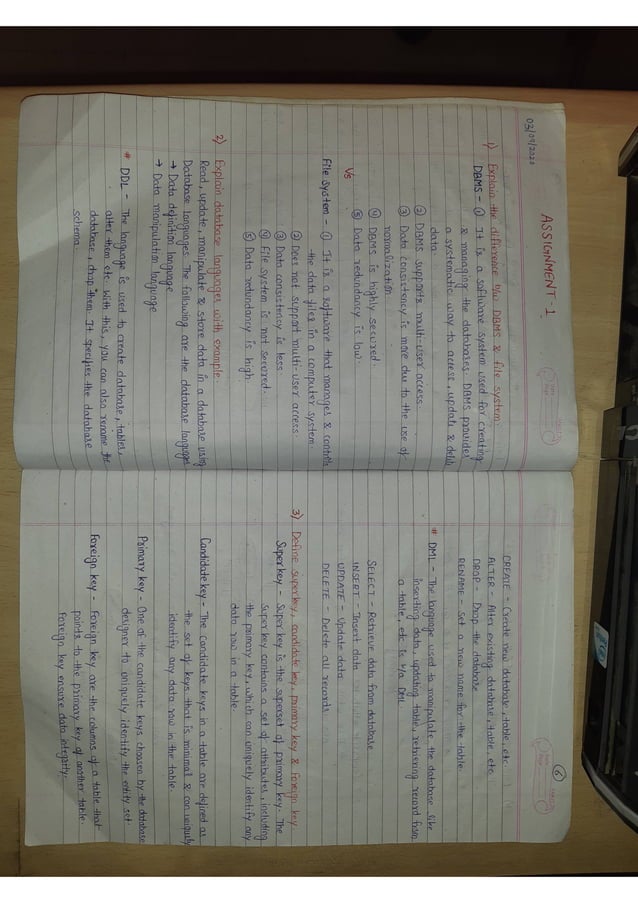 03/09/2020
ASSIGNMENT-1
1) Explain the difference b/w DBMS & file system.
DBMS - ① It is a software system used for creating
& managing the databases. DBMS provides
a systematic way to access, update & delete
data.
② DBMS supports multi-user access.
③ Data consistency is more due to the use of
normalization
④ DBMS is highly secured.
⑤ Data redundancy is low.
Vs
File system - ① It is a software that manages & controls
the data files in a computer system.
② Does not support multi-user access.
③ Data consistency is less.
④ File system is not secured.
⑤ Data redundancy is high.
2) Explain database languages with example.
Read, update, manipulate & store data in a database using
Database languages. The following are the database languages
→ Data definition language
→ Data manipulation language
# DDL - The language is used to create database, tables,
alter them etc. With this, you can also rename the
database, drop them. It specifies the database
schema.
6
CREATE - Create new database, table, etc.
ALTER - Alter existing database, table, etc.
DROP - Drop the database
RENAME - Set a new name for the table.
# DML - The language used to manipulate the database like
inserting data, updating table, retrieving record from
a table, etc is k/a DML
SELECT - Retrieve data from database
INSERT - Insert data
UPDATE - Update data
DELETE - Delete all records.
3) Define super key, candidate key, primary key & foreign key.
Super key - Super key is the superset of primary key. The
super key contains a set of attributes, including
the primary key, which can uniquely identify any
data row in a table.
Candidate key - The candidate keys in a table are defined as
the set of keys that is minimal & can uniquely
identify any data row in the table.
Primary key - One of the candidate keys chosen by the database
designer to uniquely identify the entity set.
Foreign key - Foreign key are the columns of a table that
points to the primary key of another table.
Foreign key ensure data integrity.